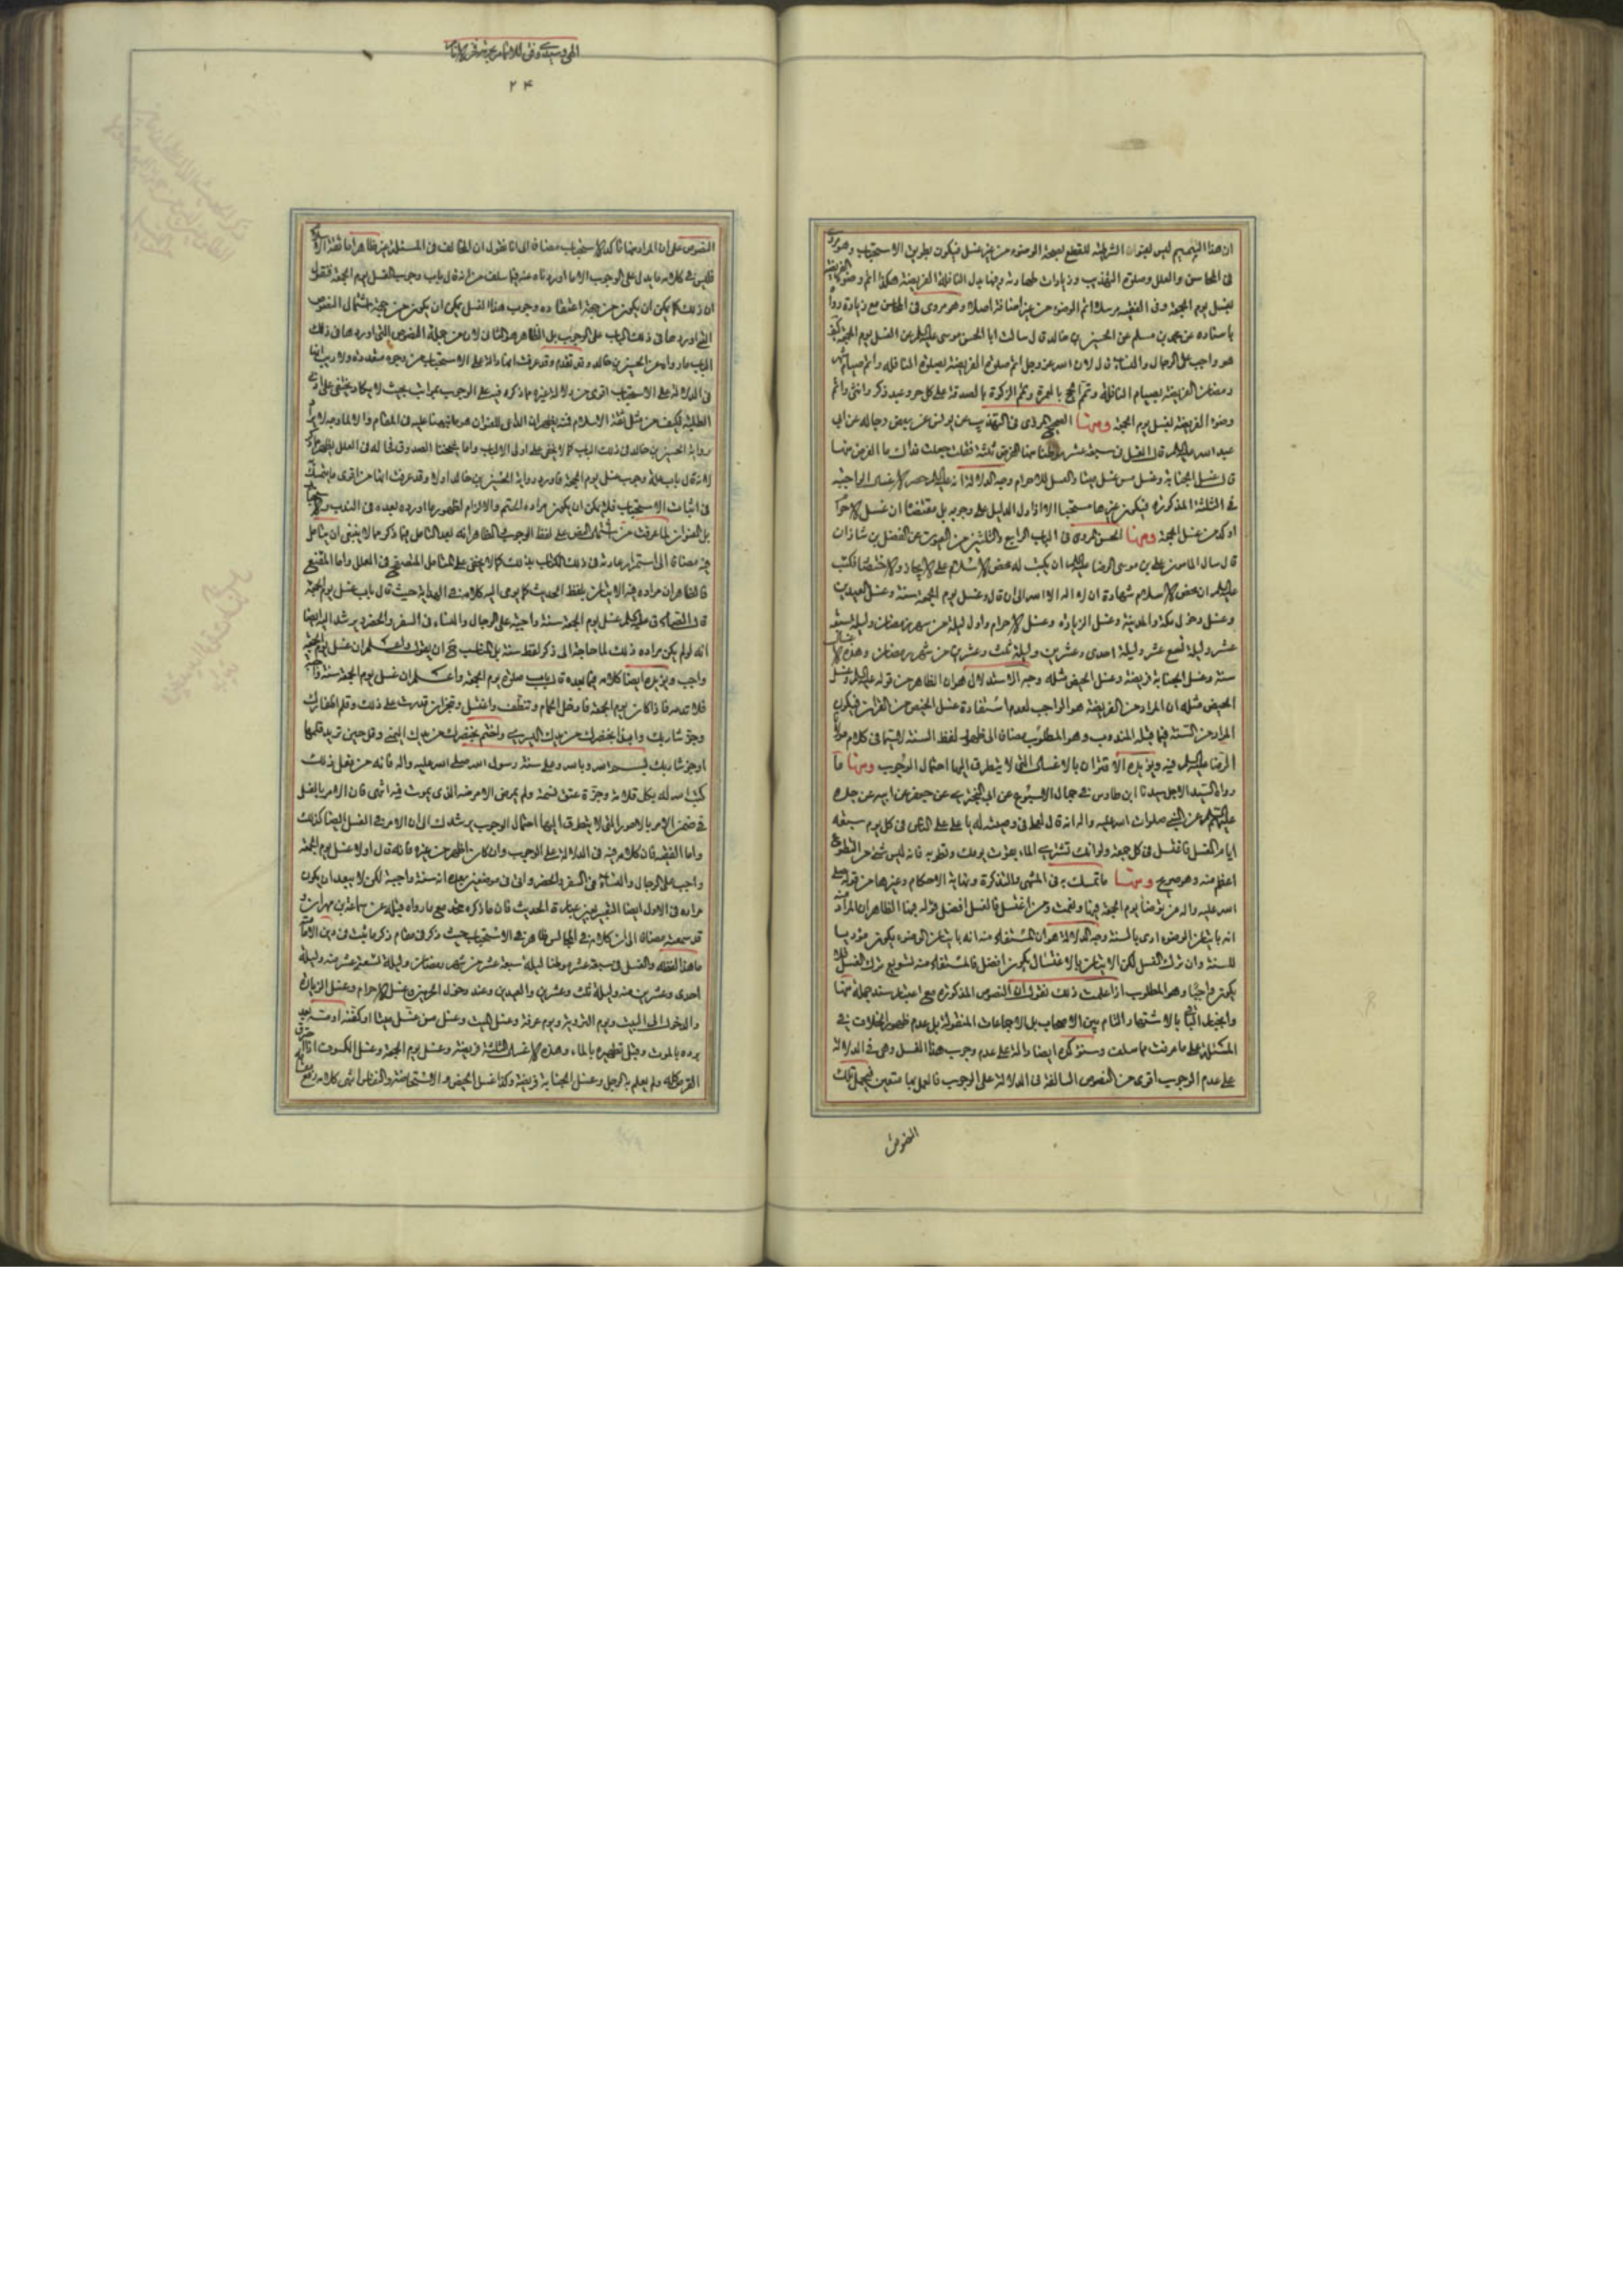 ان هذا التتميم ليس لعنوان الشرطية للقطع لصحة الوضوء من غير غسل فيكون بطريق الاستحباب وهو
فى المحاسن والعلل وصلوة التهذيب وزيادات طهارته وفيها بدل النافلة الفريضة هكذا اتم وضوء
لغسل يوم الجمعة وفى الفقيه مرسلا اتم الوضوء من غير اضافة اصلا وهو مروى فى المحاسن مع زيادة
باسناده عن محمد بن مسلم عن الحسين بن خالد قال سالت ابا الحسن موسى عليه السلام عن الغسل يوم الجمعة كيف
هو واجب على الرجال والنساء قال لان الله عز وجل اتم صلوة الفريضة بصلوة النافلة واتم صيام شهر
رمضان الفريضة بصيام النافلة وتمم الحج بالعمرة وتمم الزكوة بالصدقة على كل حر وعبد ذكر وانثى واتم
وضوء الفريضة لغسل يوم الجمعة ومنها الصحيح المروى فى التهذيب عن يونس عن بعض رجاله عن ابى
عبد الله عليه السلام قال الغسل فى سبعة عشر موطنا منها الفرض ثلثة فقلت جعلت فداك ما الفرض منها
قال غسل الجنابة وغسل من غسل ميتا والغسل للاحرام وجه الدلالة انه عليه السلام حصر الاغسال الواجبة
فى الثلثة المذكورة فيكون غيرها مستحبا الا اذا دل الدليل على وجوبه بل مقتضاها ان غسل الاحرام
اوكد من غسل الجمعة ومنها الحسن المروى فى الباب الرابع والثلثين من العيون عن الفضل بن شاذان
قال سال المامون على بن موسى الرضا عليهما السلام ان يكتب له محض الاسلام على الايجاز والاختصار فكتب
عليه السلام ان محض الاسلام شهادة ان لا اله الا الله الى ان قال وغسل يوم الجمعة سنة وغسل العيدين
وغسل دخول مكة والمدينة وغسل الزيارة وغسل الاحرام واول ليلة من شهر رمضان وليلة سبعة
عشر وليلة تسع عشر وليلة احدى وعشرين وليلة ثلث وعشرين من شهر رمضان وهذه الاغسال
سنة وغسل الجنابة فريضة وغسل الحيض مثله وجه الاستدلال هو ان الظاهر من قوله عليه السلام وغسل
الحيض مثله ان المراد من الفريضة هو الواجب لعدم استفادة غسل الحيض من القران فيكون
المراد من السنة فيما قبله المندوب وهو المطلوب مضافا الى ظهور لفظ السنة لاسيما فى كلام مولانا
الرضا عليه السلام فيه ويؤيده الاقتران بالاغسال التى لا يتطرق اليها احتمال الوجوب ومنها ما
رواه السيد الاجل سيدنا ابن طاوس فى جمال الاسبوع عن ابى البخترى عن جعفر عن ابيه عن جده
عليهم السلام عن النبى صلوات الله عليه واله انه قال لعلى فى وصيته له يا على على الناس فى كل يوم سبعة
ايام الغسل فاغتسل فى كل جمعة ولو انك تشترى الماء بقوت يومك وتطويه فانه ليس شئ من التطوع
اعظم منه وهو صريح ومنها ما تمسك به فى المنتهى والتذكرة ونهاية الاحكام وغيرها من قوله صلى
الله عليه واله من توضا يوم الجمعة فبها ونعمت ومن اغتسل فالغسل افضل قوله فبها الظاهر ان المراد
انه باتيان الوضوء اوى بالسنة وجه الدلالة هو ان المستفاد منه انه باتيان الوضوء يكون مؤديا
للسنة وان ترك الغسل لكن الاتيان بالاغتسال يكون افضل فالمستفاد منه تسويغ ترك الغسل فلا
يكون واجبا وهو المطلوب اذا علمت ذلك نقول ان النصوص المذكورة مع اعتبار سند جملة منها
وانجبار الباقى بالاشتهار التام بين الاصحاب بل الاجماعات المنقولة بل عدم ظهور الخلاف فى
المسئلة على ما عرفت مما سلف وستدركه ايضا دالة على عدم وجوب هذا الغسل وهى فى الدلالة
على عدم الوجوب اقوى من النصوص السالفة فى الدلالة على الوجوب فالعمل بها متعين فيحمل تلك
النصوص
٢٤
النصوص على ان المراد منها تاكد الاستحباب مضافا الى انا نقول ان المخالف فى المسئلة غير ظاهر اما ثقة الاسلام
فليس فى كلامه ما يدل على الوجوب الا ما اوردناه عنه فيما سلف من انه قال باب وجوب الغسل يوم الجمعة فنقول
ان ذلك كما يمكن ان يكون من جهة اعتقاده وجوب هذا الغسل يمكن ان يكون من جهة اشتمال النصوص
التى اوردها فى ذلك الباب على الوجوب بل الظاهر هو الثانى لان من جملة النصوص التى اوردها فى ذلك
الباب ما رواه عن الحسين بن خالد وقد تقدم وقد عرفت انها دالة على الاستحباب من وجوه متعددة ولا ريب انها
فى الدلالة على الاستحباب اقوى من دلالة غيره مما ذكره فيه على الوجوب بمراتب بحيث لا يكاد يختفى على اولى
رواية الحسين بن خالد فى ذلك الباب كما لا يخفى على اولى الالباب واما شيخنا الصدوق فما له فى العلل
لانه قال باب علة وجوب غسل يوم الجمعة فاورد رواية الحسين بن خالد اولا وقد عرفت انها من اقوى ما يتمسك
فى اثبات الاستحباب فلا يمكن ان يكون مراده الحتم والالزام لظهور ما اورده بعده فى الندب والاستحباب
فيه مضافا الى استمرار عادته فى ذلك الكتاب بذلك كما لا يخفى على المتامل المتصفح فى العلل واما المقنع
فالظاهر ان مراده فيه الاتيان بلفظ الحديث كما يومى اليه كلامه فى الهداية حيث قال باب غسل يوم الجمعة
قال الصادق عليه السلام غسل يوم الجمعة سنة واجبة على الرجال والنساء فى السفر والحضر يرشد اليه ايضا
انه لو لم يكن مراده ذلك لما حاجة الى ذكر لفظ سنة بل المناسب ان يقول واعلم ان غسل يوم الجمعة
واجب ويؤيده ايضا كلامه فيما بعده قال باب صلوة يوم الجمعة واعلم ان غسل يوم الجمعة سنة واجبة
فلا تدعه فاذا كان يوم الجمعة فادخل الحمام وتنظف واغتسل وتحزان قدرت على ذلك وقلم اظفارك
وجز شاربك وابدا بخنصرك من يدك اليسرى واختم بخنصرك من يدك اليمنى وقل حين تريد قلمها
او جز شاربك بسم الله وبالله وعلى سنة رسول الله صلى الله عليه واله فانه من يفعل ذلك
كتب الله له بكل قلامة وجزة عتق نسمة ولم يمرض الا مرضه الذى يموت فيه انتهى فان الامر بالغسل
فى ضمن الامر بالامور التى لا يتطرق اليها احتمال الوجوب يرشدك الى ان الامر فى الغسل ايضا كذلك
واما الفقيه فان كلامه فيه فى الدلالة على الوجوب وان كان اظهر من غيره فانه قال اولا غسل يوم الجمعة
واجب على الرجال والنساء فى السفر والحضر واتى فى موضعين بعده انه سنة واجبة لكن لا يبعد ان يكون
مراده فى الاول ايضا التعبير بعين عبارة الحديث فان ما ذكره متحد مع ما رواه قبله عن سماعة بن مهران
قد سمعته مضافا الى ان كلامه فى المجالس ظاهر فى الاستحباب حيث ذكر فى مقام ذكر ما يثبت فى دين الامامية
ما هذا لفظه والغسل فى سبعة عشر موطنا ليلة سبعة عشر من شهر رمضان وليلة تسعة عشر منه وليلة
احدى وعشرين منه وليلة ثلث وعشرين والعيدين وعند دخول الحرمين وغسل الاحرام وغسل الزيارة
والدخول الى البيت ويوم التروية ويوم عرفة وغسل الميت وغسل من غسل ميتا او كفنه او مسه بعد
برده بالموت وقبل تطهيره بالماء وهذه الاغسال الثلثة فريضة وغسل يوم الجمعة وغسل الكسوف اذا احترق
القرص كله ولم يعلم به الرجل وغسل الجنابة فريضة وكذا غسل الحيض والاستحاضة والنفاس انتهى كلامه رفع مقامه